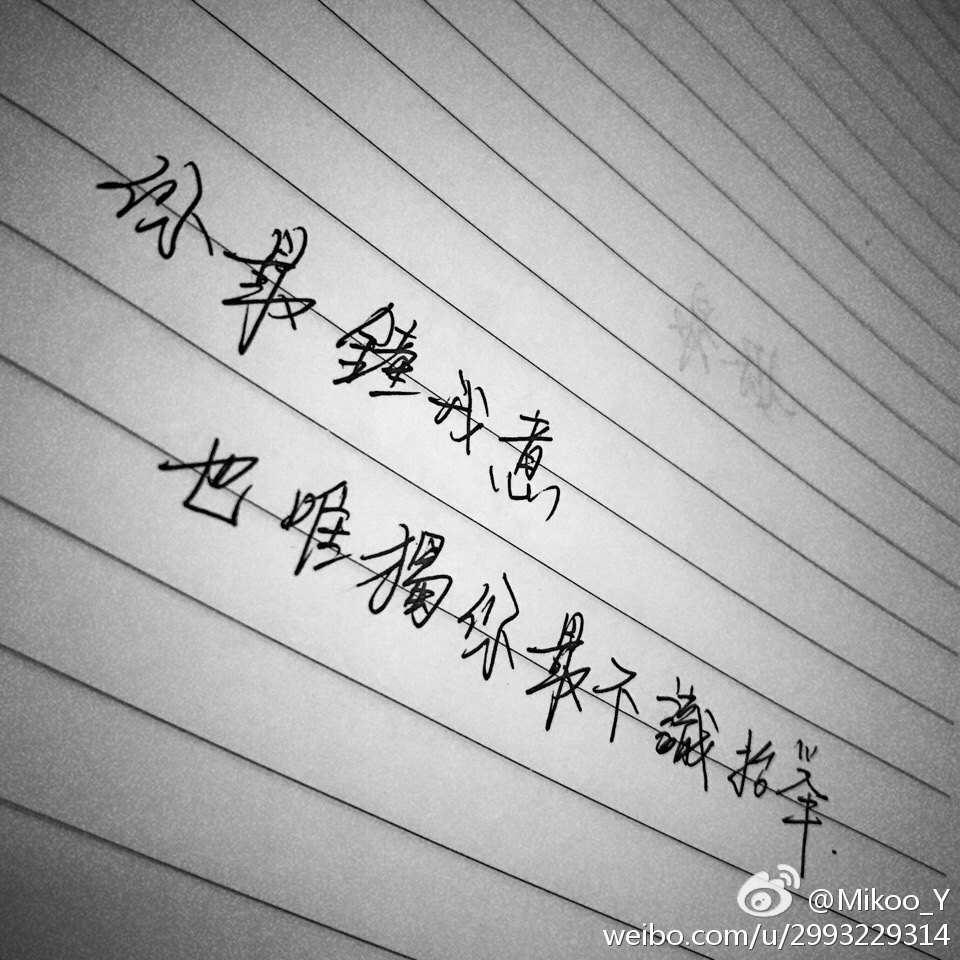 你最鍾我意
也唯獨你最不識抬举.
@Mikoo_Y
weibo.com/u/2993229314